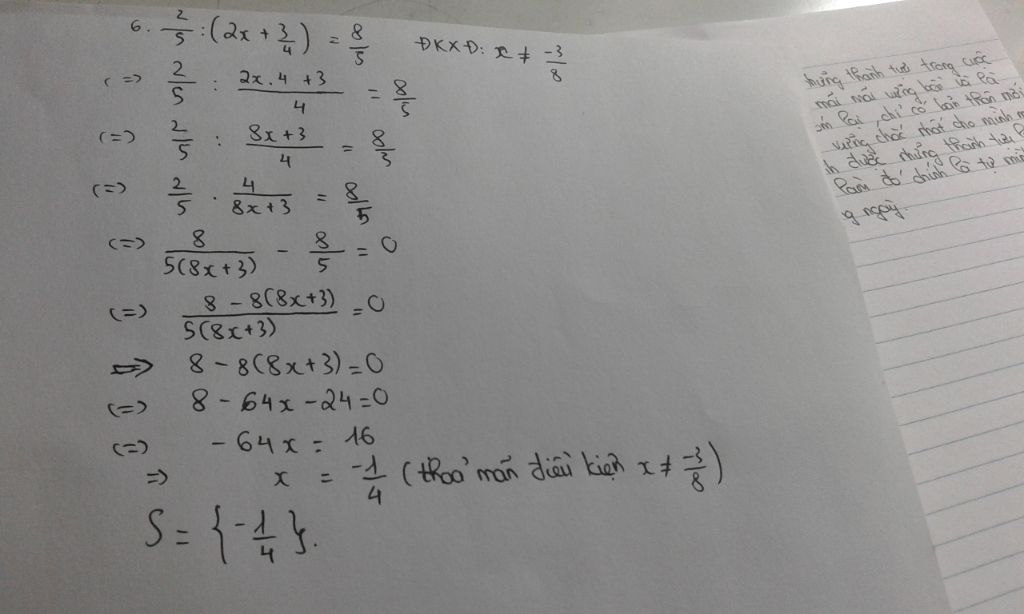 6. 2/5 : (2x + 3/4) = 8/5 ĐKXĐ: x ≠ -3/8
(=) 2/5 : (2x.4 + 3)/4 = 8/5
(=) 2/5 : (8x+3)/4 = 8/5
(=) 2/5 . 4/(8x+3) = 8/5
(=) 8/(5(8x+3)) - 8/5 = 0
(=) (8 - 8(8x+3))/(5(8x+3)) = 0
=> 8 - 8(8x+3) = 0
(=) 8 - 64x - 24 = 0
(=) - 64x = 16
=> x = -1/4 (thoả mãn điều kiện x ≠ -3/8)
S = {-1/4}.
những thành tựu trong cuộc
mãi mãi vững bền và
lại, chỉ có bản thân mới
vững chắc nhất cho mình
được những thành tựu
làm đó chính là tự
ngày.